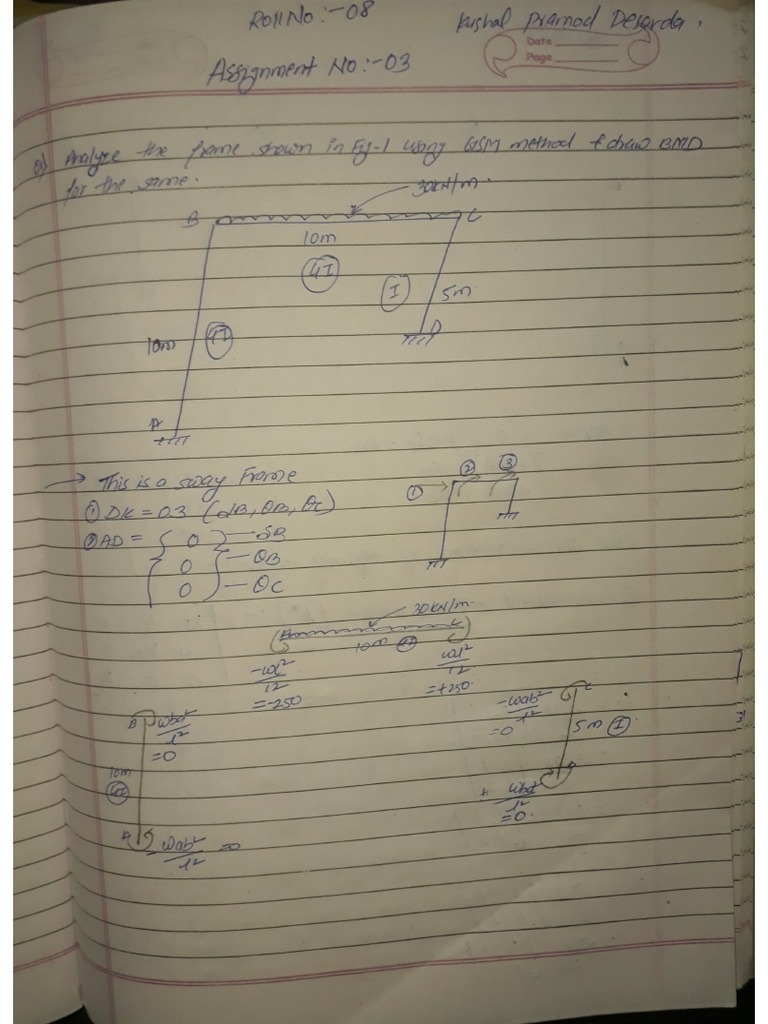 Roll No :- 08
Kushal Pramod Desarda.
Date
Page
Assignment No :- 03
Q1) Analyze the frame shown in Fig-1 using GSM method & draw BMD
for the same.
30kN/m.
B
C
10m
4I
I
5m
D
10m
4I
A
→ This is a sway Frame
① DK = 03 (δB, θB, θC)
② AD = { 0 } — δB
{ 0 } — θB
{ 0 } — θC
①
②
③
30kN/m.
B
C
10m 4I
-wl²/12
= -250
wl²/12
= +250
B
wba²/l²
= 0
10m
4I
A
wab²/l² = 0
-wab²/l²
= 0
C
5m I
wba²/l²
= 0.